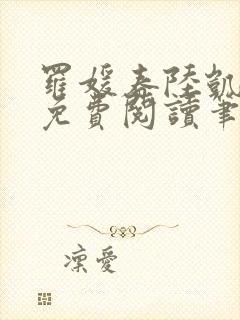 羅媛春陸凱
免費閱讀筆
凜愛